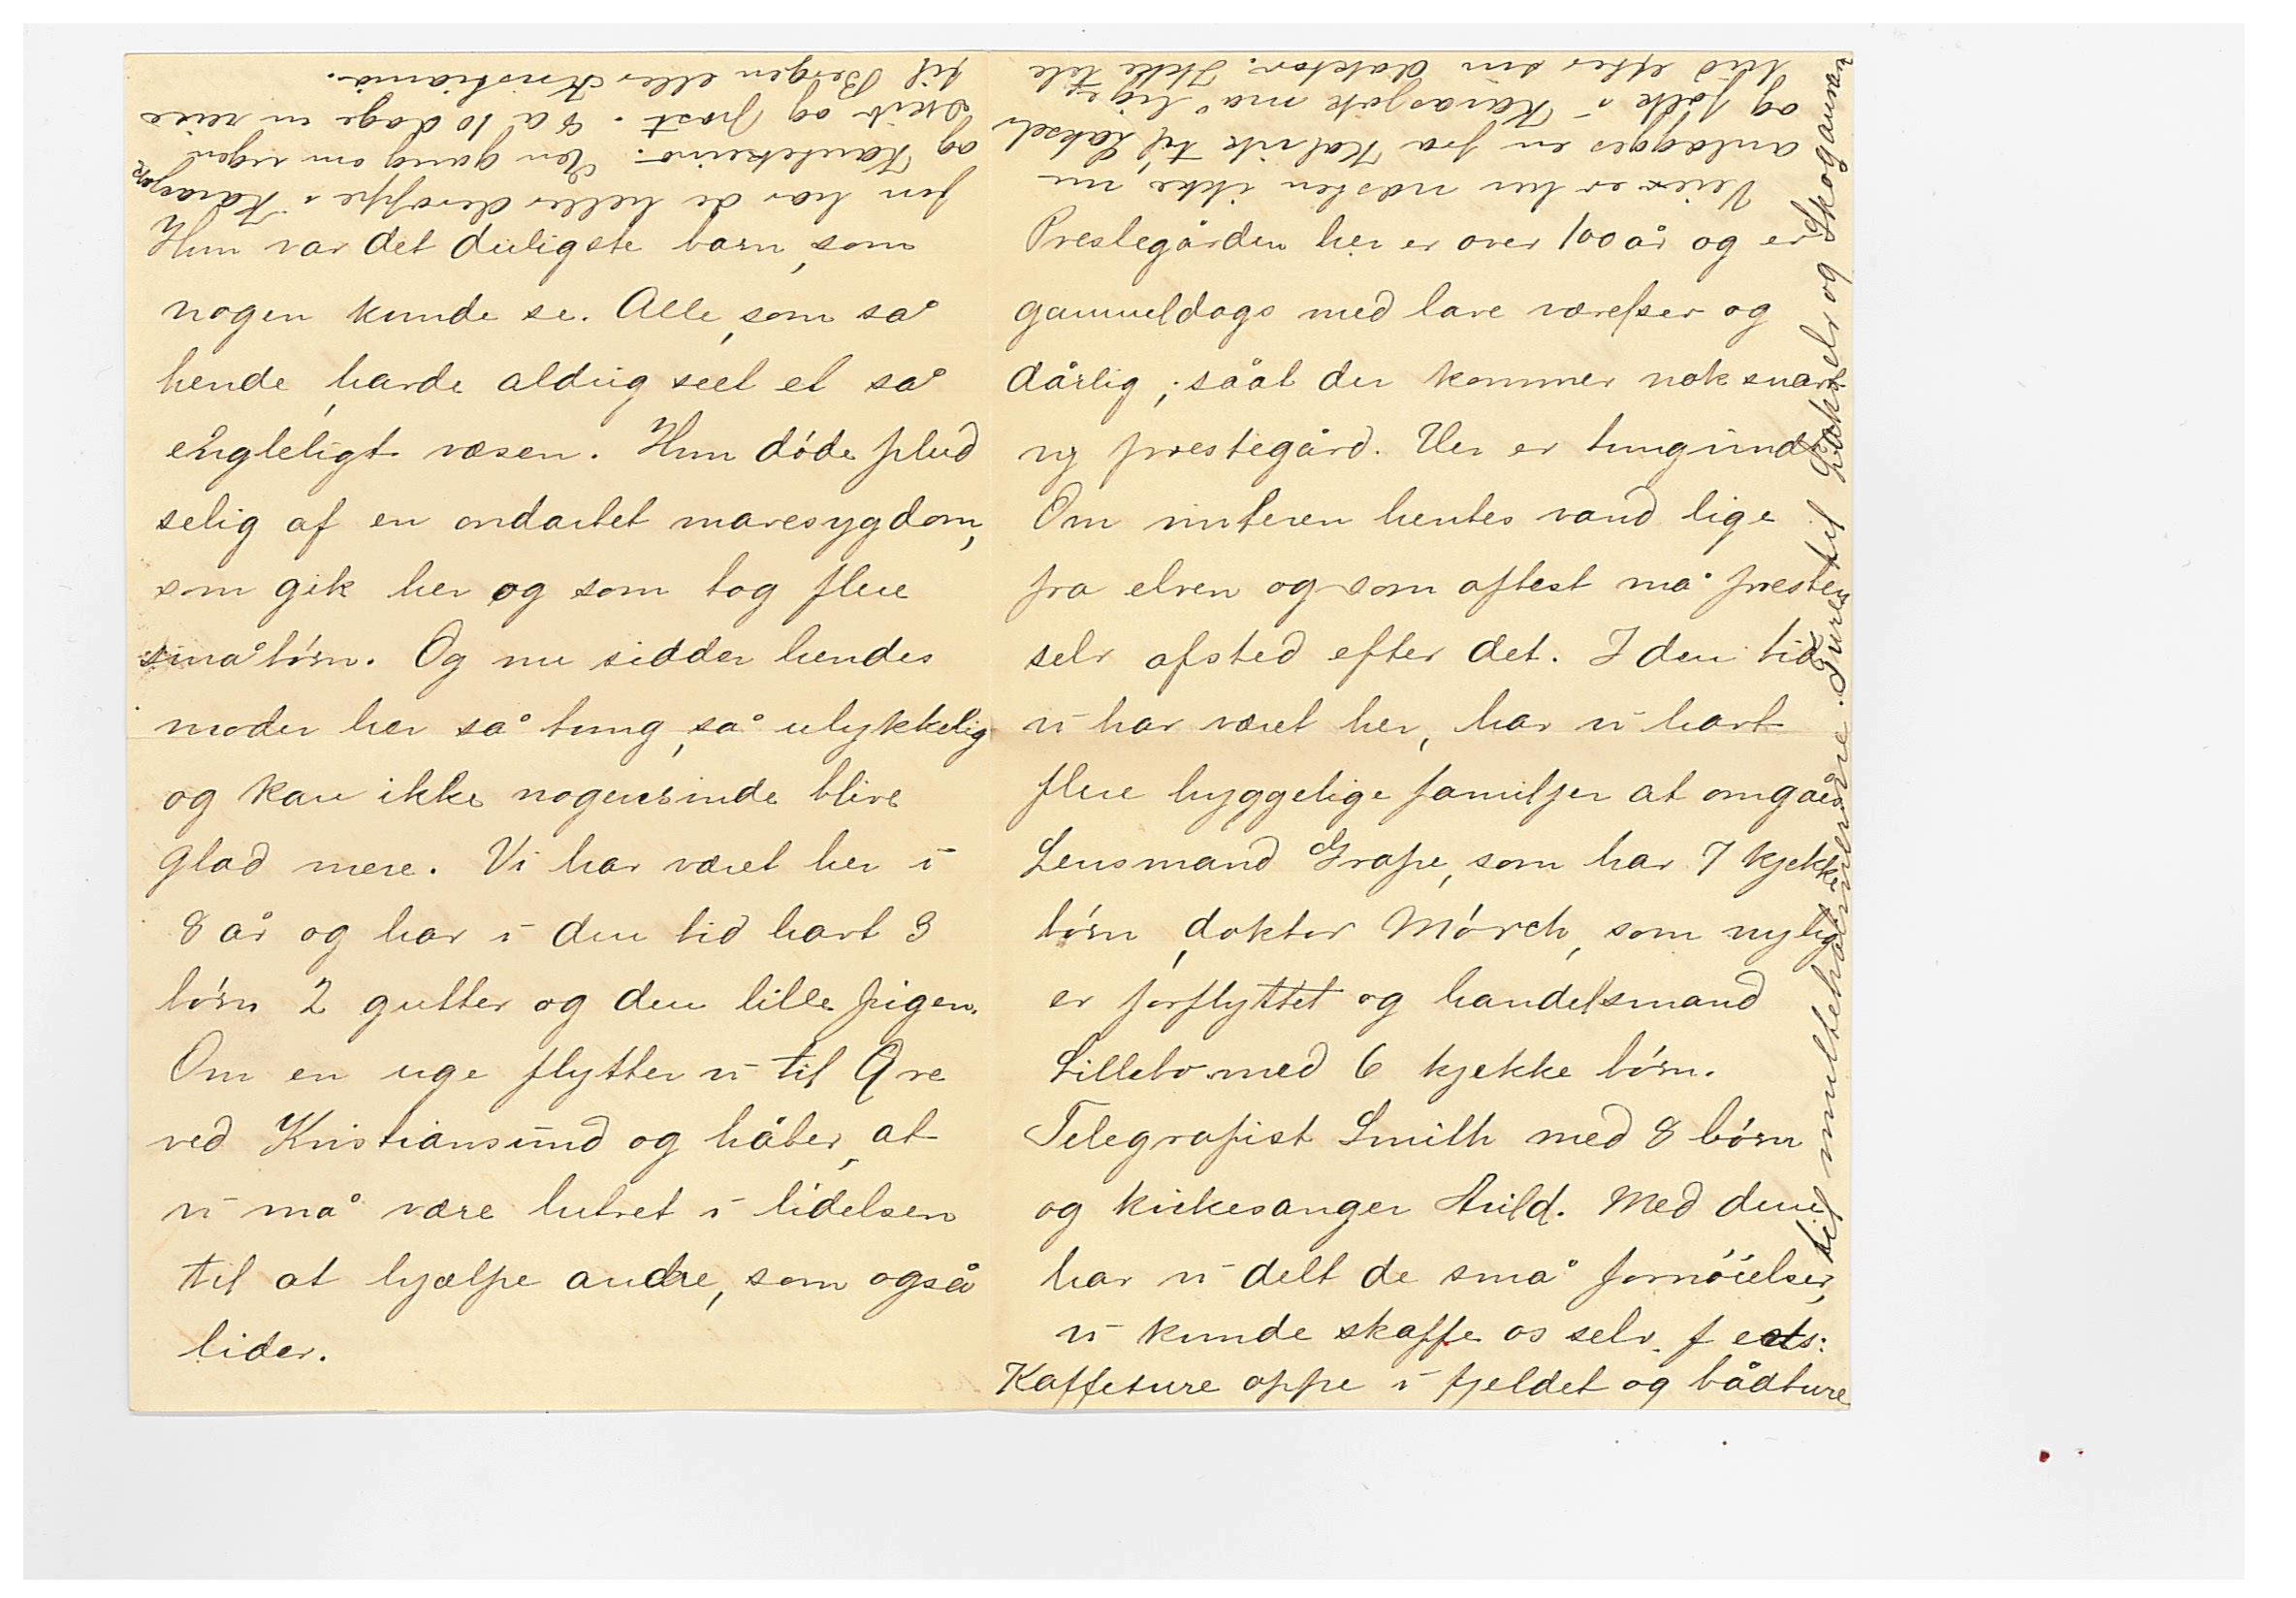 Hun var det deiligste barn, som
nogen kunde se. Alle, som så
hende, havde aldrig seet et så
engleligt væsen. Hun døde plud
selig af en ondartet mavesygdom,
som gik her og som tog flere
små børn. Og nu sidder hendes
moder her så tung, så ulykkelig
og kan ikke nogensinde blive
glad mere. Vi har været her i
8 år og har i den tid havt 3
børn 2 gutter og den lille pigen.
Om en uge flytter vi til Qve
ved Kristiansund og håber, at
vi må være lutret i lidelsen
til at hjælpe andre, som også
lider.
Prestegården her er over 100 år og er
gammeldags med lave værelser og
dårlig; såat der kommer nok snart
ny prestegård. Her er tungvindt
Om vinteren hentes vand lige
fra elven og som oftest må presten
selv afsted efter det. I den tid
vi har været her, har vi havt
flere hyggelige familjer at omgåes
Lensmand Grape, som har 7 kjekke
børn, doktor Mørch, som nylig
er forflyttet og handelsmand
Lillebo med 6 kjekke børn.
Telegrafist Smith med 8 børn
og kirkesanger Huld. Med dem
har vi delt de små fornøielser,
vi kunde skaffe os selv. f eks:
Kaffeture oppe i fjeldet og bådture
til multebærøerne. Ture til Lakselv og Skoganvarre
Veier er her næsten ikke, nu
anlægges en fra Kolvik til Lakselv
og folk i Karasjok må lige
hid efter sin doktor. Ikke tele
fon har de heller deroppe i Karasjok
og Kautokeino. En gang om ugen
skib og post. 8 à 10 dage en reise
til Bergen eller Kristiania.